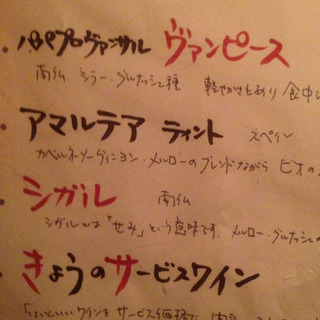 ・パパプロヴァンサル ヴァンピース
南仏 シラー・グルナッシュ種 軽やかさもあり 食中
・アマルテア ティント スペイン
カベルネソーヴィニヨン・メルローのブレンドながら ビオの
・シガル 南仏
シガルとは「せみ」という意味です。メルロー・グルナッシュの
・きょうのサービスワイン
ちょっといいワインをサービス価格で